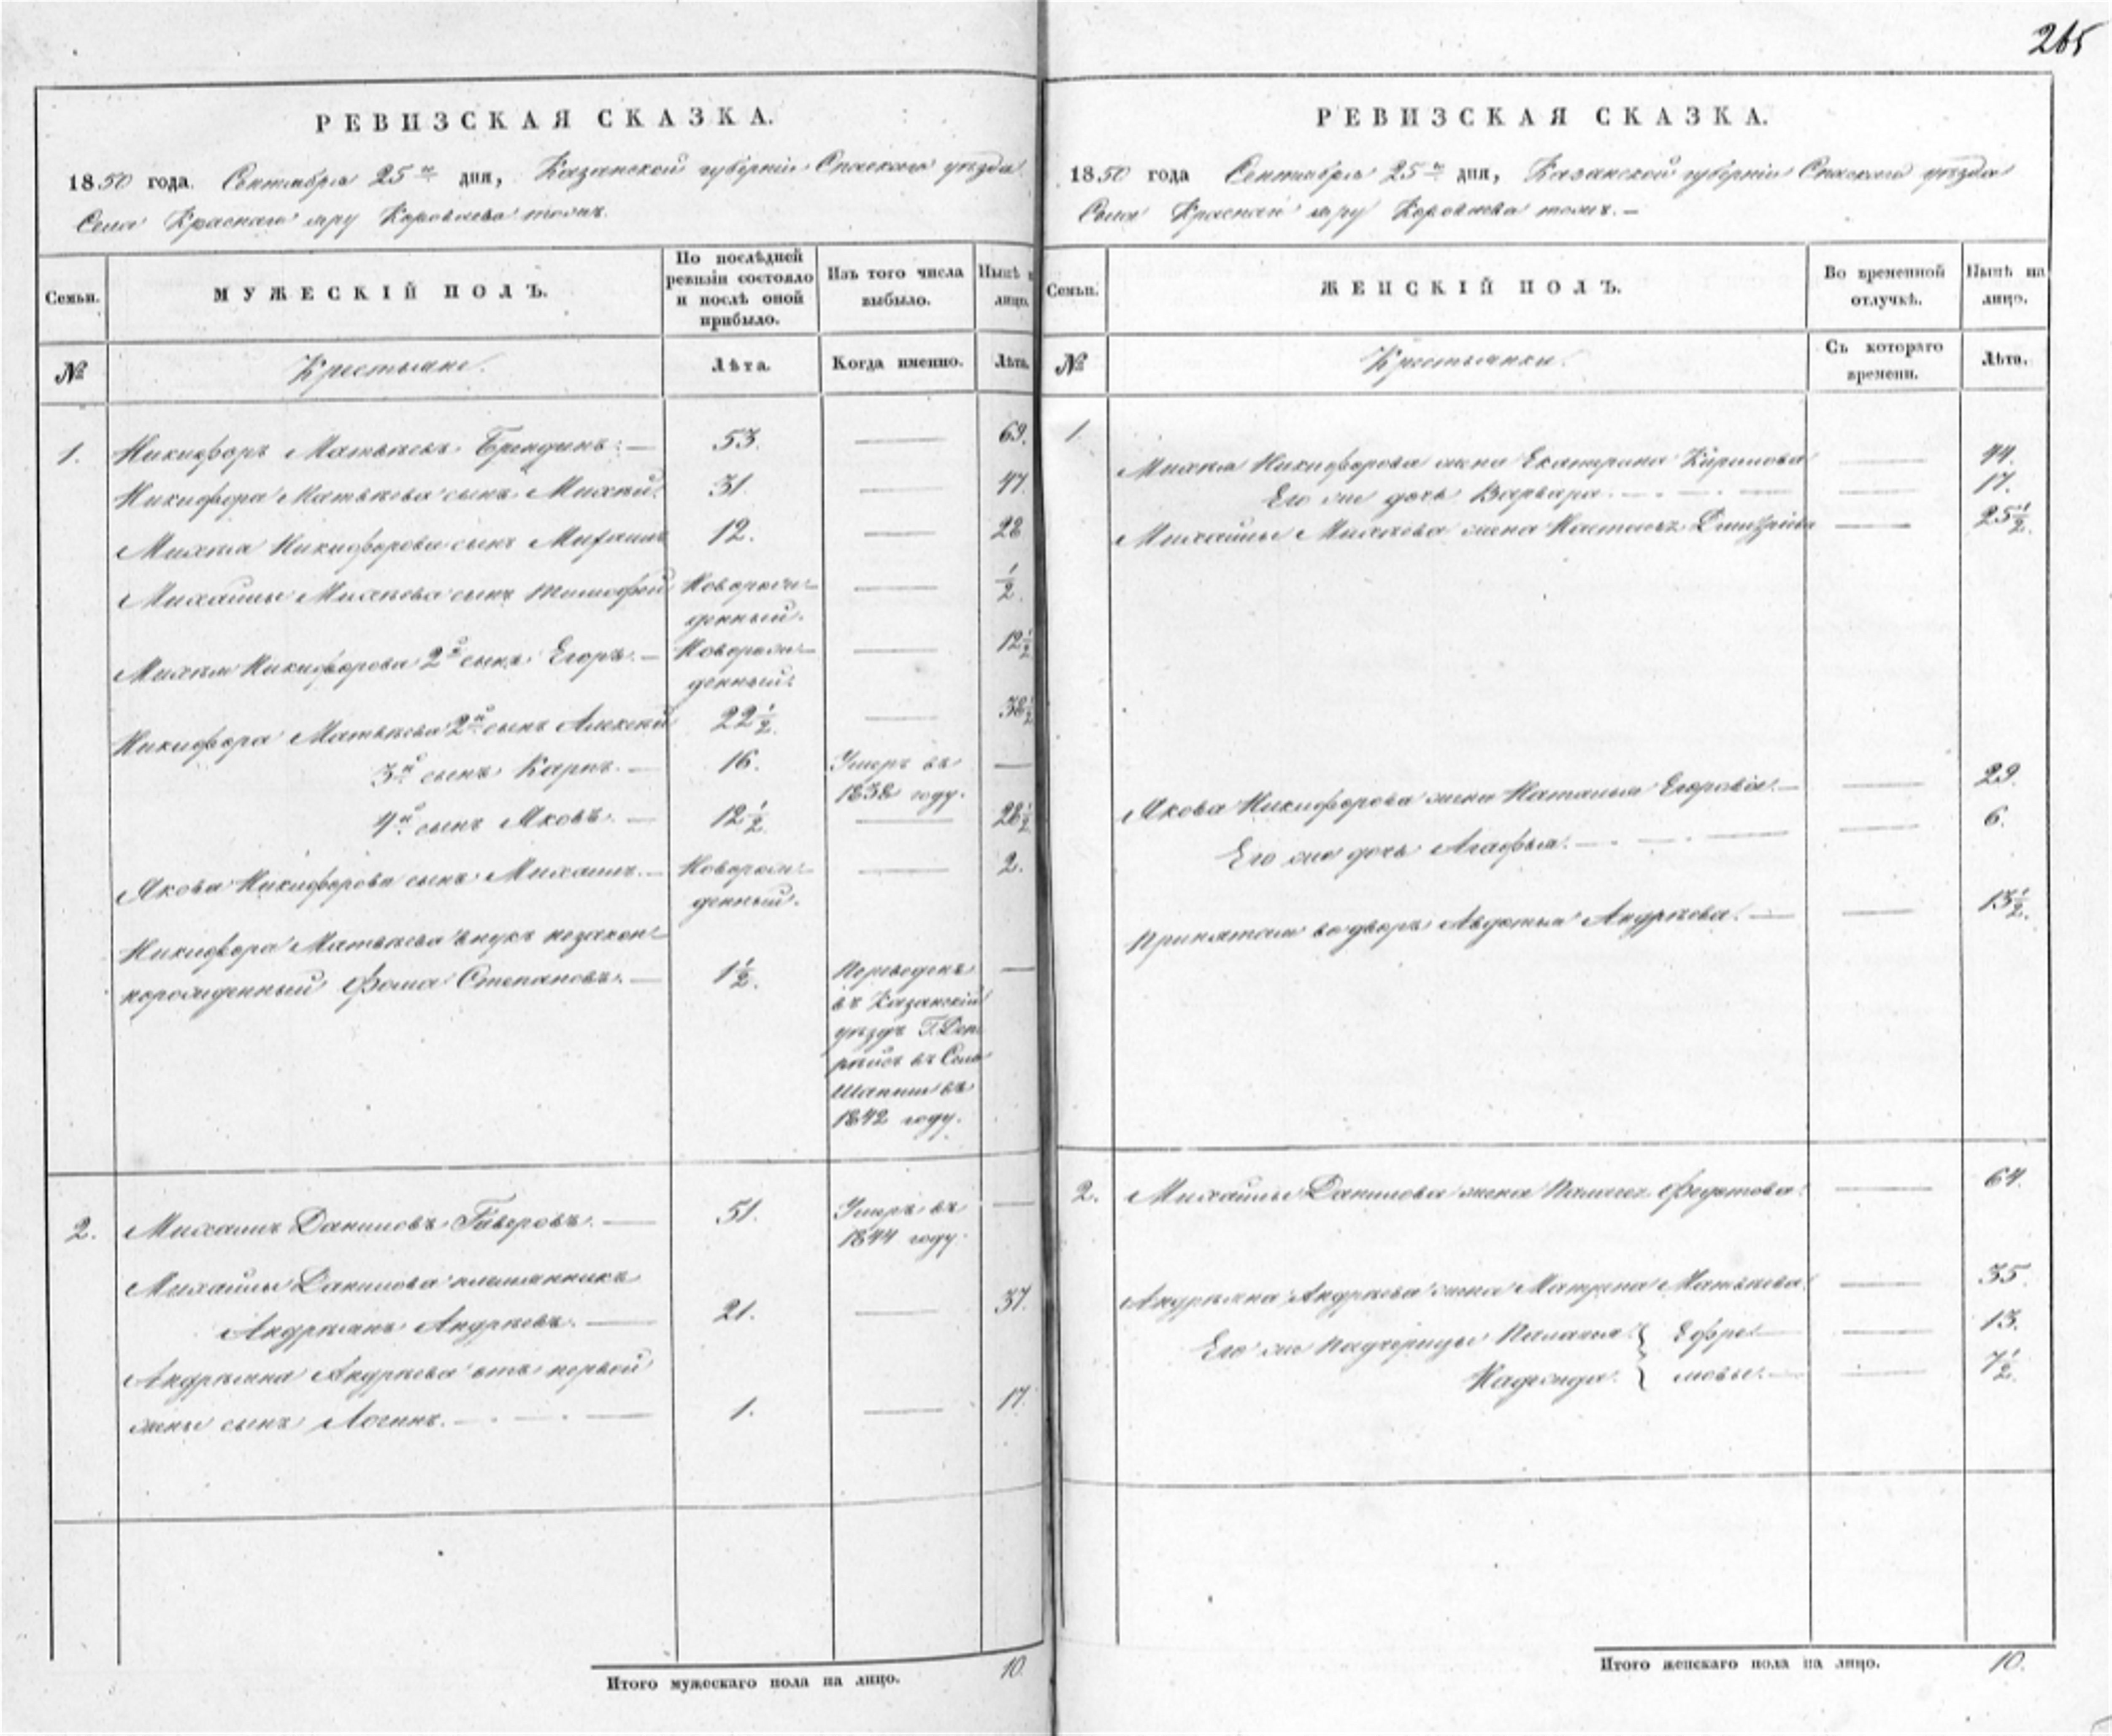 265
РЕВИЗСКАЯ СКАЗКА.
1850 года. Сентября 25го дня, Казанской губерніи Спаскаго уѣзда
Села Краснаго яру Короваева тожъ.
Семьи.
МУЖЕСКІЙ ПОЛЪ.
По послѣдней ревизіи состояло и послѣ оной прибыло.
Изъ того числа выбыло.
Нынѣ на лицо.
№
Крестьяне.
Лѣта.
Когда именно.
Лѣта.
1. Никифоръ Матвѣевъ 53. 69.
Никифора Матвѣева сынъ Михѣй 31. 47.
Михѣя Никифорова сынъ Михаилъ 12. 28
Михайлы Михѣева сынъ Тимофей Новорож- ½
денный.
Михѣя Никифорова 2й сынъ Егоръ. Новорож- 12½
денный.
Никифора Матвѣева 2й сынъ Алексей 22½ 38½
3й сынъ Карпъ. 16. Умеръ въ
1838 году.
4й сынъ Яковъ. 12½ 28½
Якова Никифорова сынъ Михаилъ. Новорож- 2.
денный.
Никифора Матвѣева внукъ незакон-
норожденный Фома Степановъ. 1½. Переведенъ
въ Казанскій
уѣздъ
въ Село
въ
1842 году.
2. Михаилъ Даниловъ 51. Умеръ въ
1844 году.
Михайлы Данилова племянникъ
Андреянъ Андреевъ. 21. 37.
Андреяна Андреева отъ первой
жены сынъ Логинъ. 1. 17.
Итого мужескаго пола на лицо. 10.
РЕВИЗСКАЯ СКАЗКА.
1850 года Сентября 25го дня, Казанской губерніи Спаскаго уѣзда
Села Краснаго яру Короваева тожъ.
Семьи.
ЖЕНСКІЙ ПОЛЪ.
Во временной отлучкѣ.
Нынѣ на лицо.
№
Крестьянки.
Съ котораго времени.
Лѣта.
1. Михѣя Никифорова жена Екатерина Кирилова 44.
Его же дочь Варвара. 17.
Михайлы Михѣева жена Настасья Дмитріева 25½.
Якова Никифорова жена Наталья Егорова. 29.
Его же дочь Агафья. 6.
Принятая во дворъ Авдотья Андреева. 13½.
2. Михайлы Данилова жена Федотова. 64.
Андреяна Андреева жена Матрена Матвѣева. 35.
Его же падчерицы Пелагея } Ефре- 13.
Надежда } мовы. 7½
Итого женскаго пола на лицо. 10.